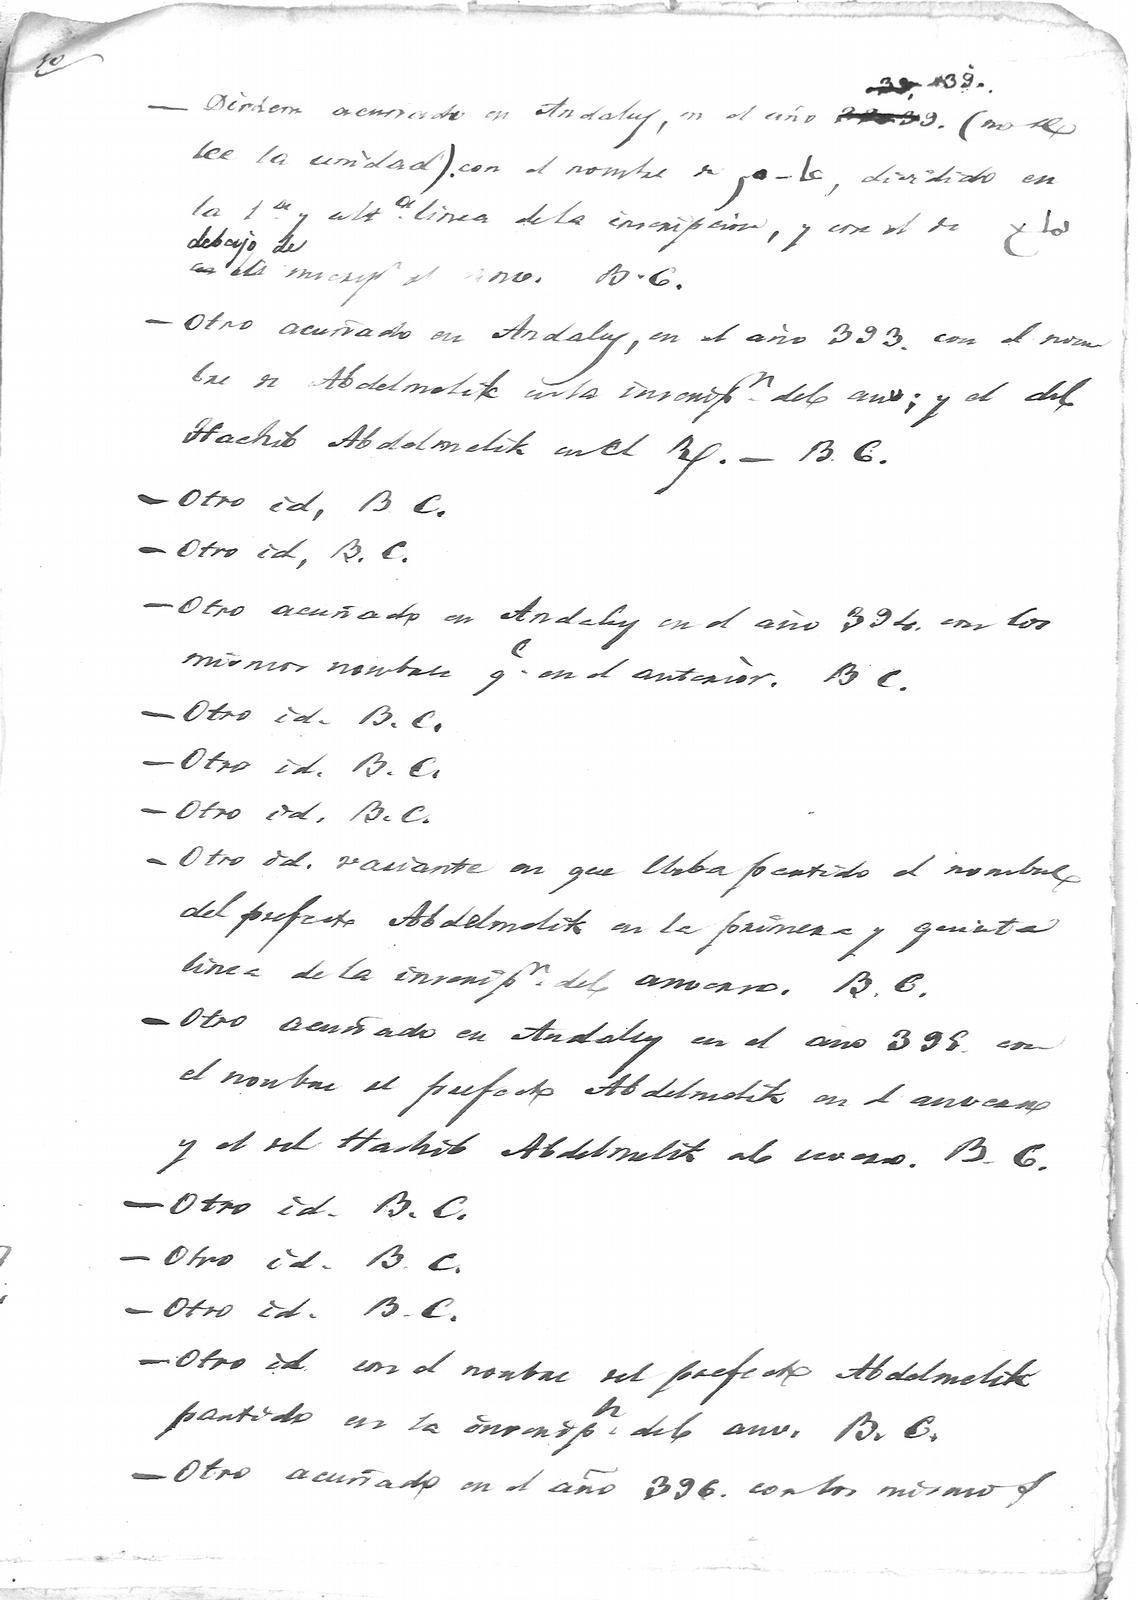 10
39. 39.
— Dirhem acuñado en Andaluy, en el año 39. (no se
lee la unidad). con el nombre de, dividido en
la 1ª y ultª linea de la inscripcion, y con el de
debajo de
la inscripn el B. C.
— Otro acuñado en Andaluy, en el año 393. con el nom
bre de Abdelmelik en la inscripn del anv; y el del
Hachib Abdelmelik en el Rev. — B. C.
— Otro id, B C.
— Otro id, B. C.
— Otro acuñado en Andaluy en el año 394. con los
mismos nombres qe en el anterior. B C.
— Otro id. B. C.
— Otro id. B. C.
— Otro id. B. C.
— Otro id. variante en que lleba partido el nombre
del prefecto Abdelmelik en la primera y quinta
linea de la inscripn del anverso. B. C.
— Otro acuñado en Andaluy en el año 395. con
el nombre el prefecto Abdelmelik en el anverso
y el del Hachib Abdelmelik al reverso. B. C.
— Otro id. B. C.
— Otro id. B. C.
— Otro id. B. C.
— Otro id con el nombre del prefecto Abdelmelik
partido en la inscripn del anv. B. C.
— Otro acuñado en el año 396. con los mismos